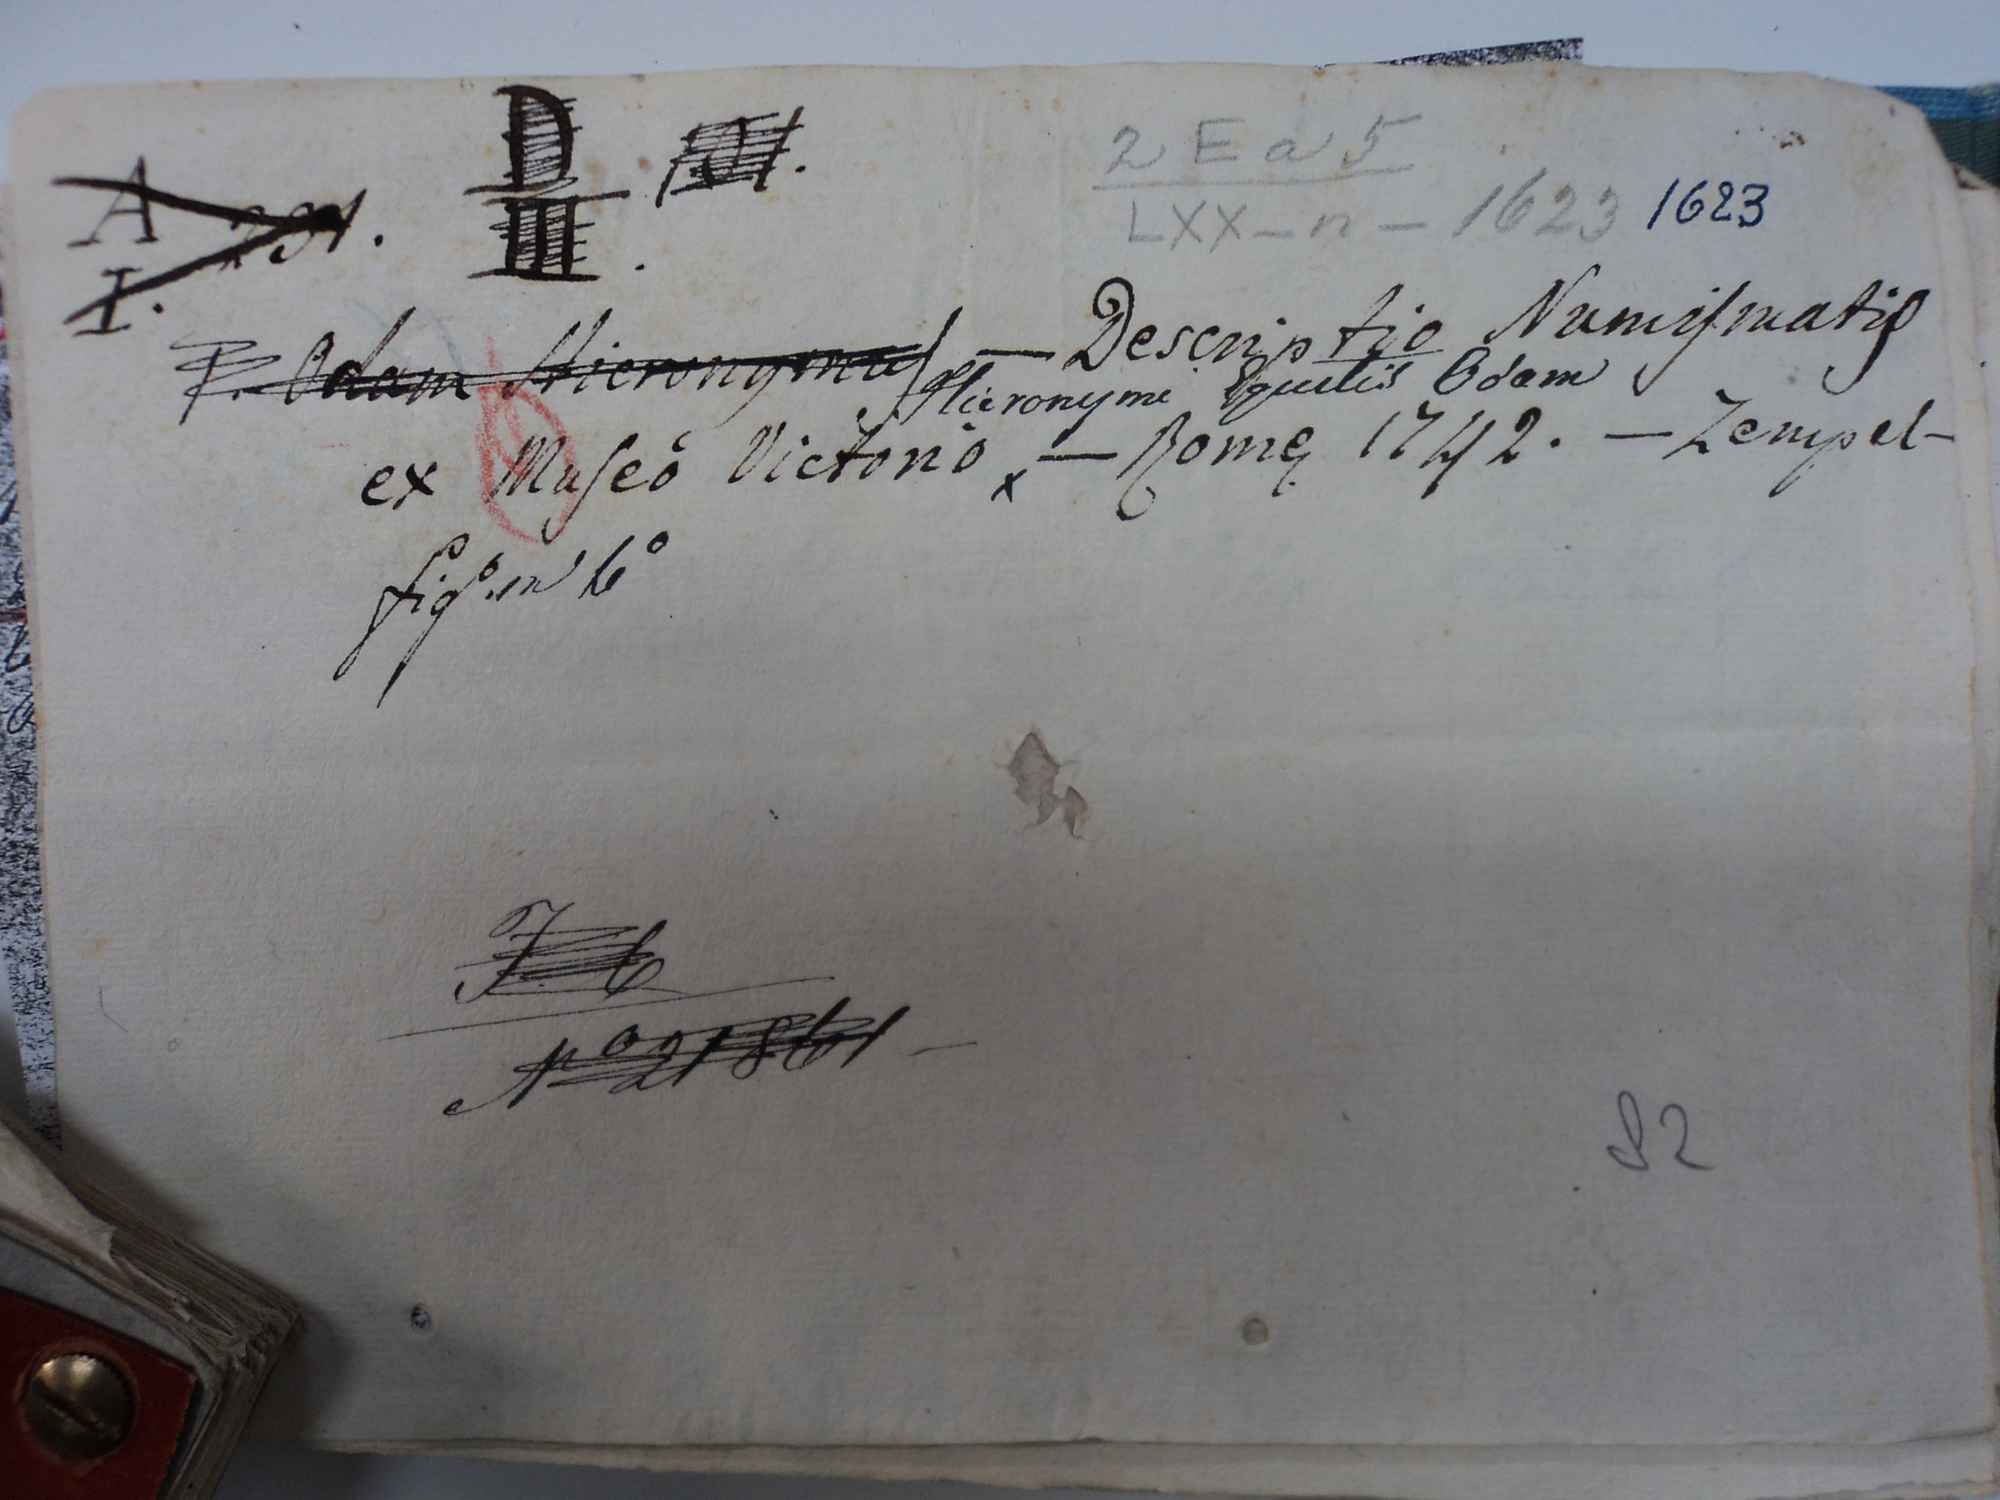 2 E a 5
LXX - n - 1623 1623
A
I.
D
III.
P. Odam Hieronymus — Descriptio Numismatis
Hieronymi Equitis Odam
ex Museo Victorio x — Romę 1742. — Zempel-
fig. in 6°
F. 6
N° 21861 —
82